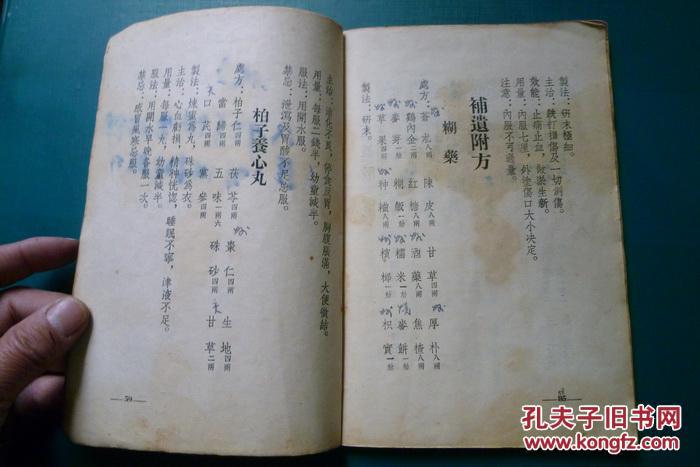 製法：研末極細。
主治：跌打損傷及一切刺傷。
效能：止痛止血，散瘀生新。
用量：內服七厘，外塗傷口大小決定。
注意：內服不可過量。
補遺附方
糊藥
處方：蒼朮八兩 陳皮八兩 甘草四兩 厚朴八兩
鷄內金三兩 紅糖八兩 酒藥八兩 焦楂八兩
麥芽一觔 糯米一觔 麥餅一觔
草果四兩 神糉八兩 檳榔一觔 枳實一觔
製法：研末。
主治：消化不良，停食反胃，胸腹脹滿，大便徵結。
用量：每服二錢半，幼童減半。
服法：用開水服。
禁忌：泄瀉及胃酸不足忌服。
柏子養心丸
處方：柏子仁四兩 茯苓四兩 棗仁四兩 生地四兩
當歸四兩 五味一兩六 硃砂四兩 甘草二兩
口芪四兩 黨參四兩
製法：煉蜜爲丸，硃砂爲衣。
主治：心血虧損，精神恍惚，睡眠不寧，津液不足。
用量：每服一丸，幼童減半。
服法：用開水早晚各服一次。
禁忌：感冒風寒忌服。
59
孔夫子旧书网
www.kongfz.com